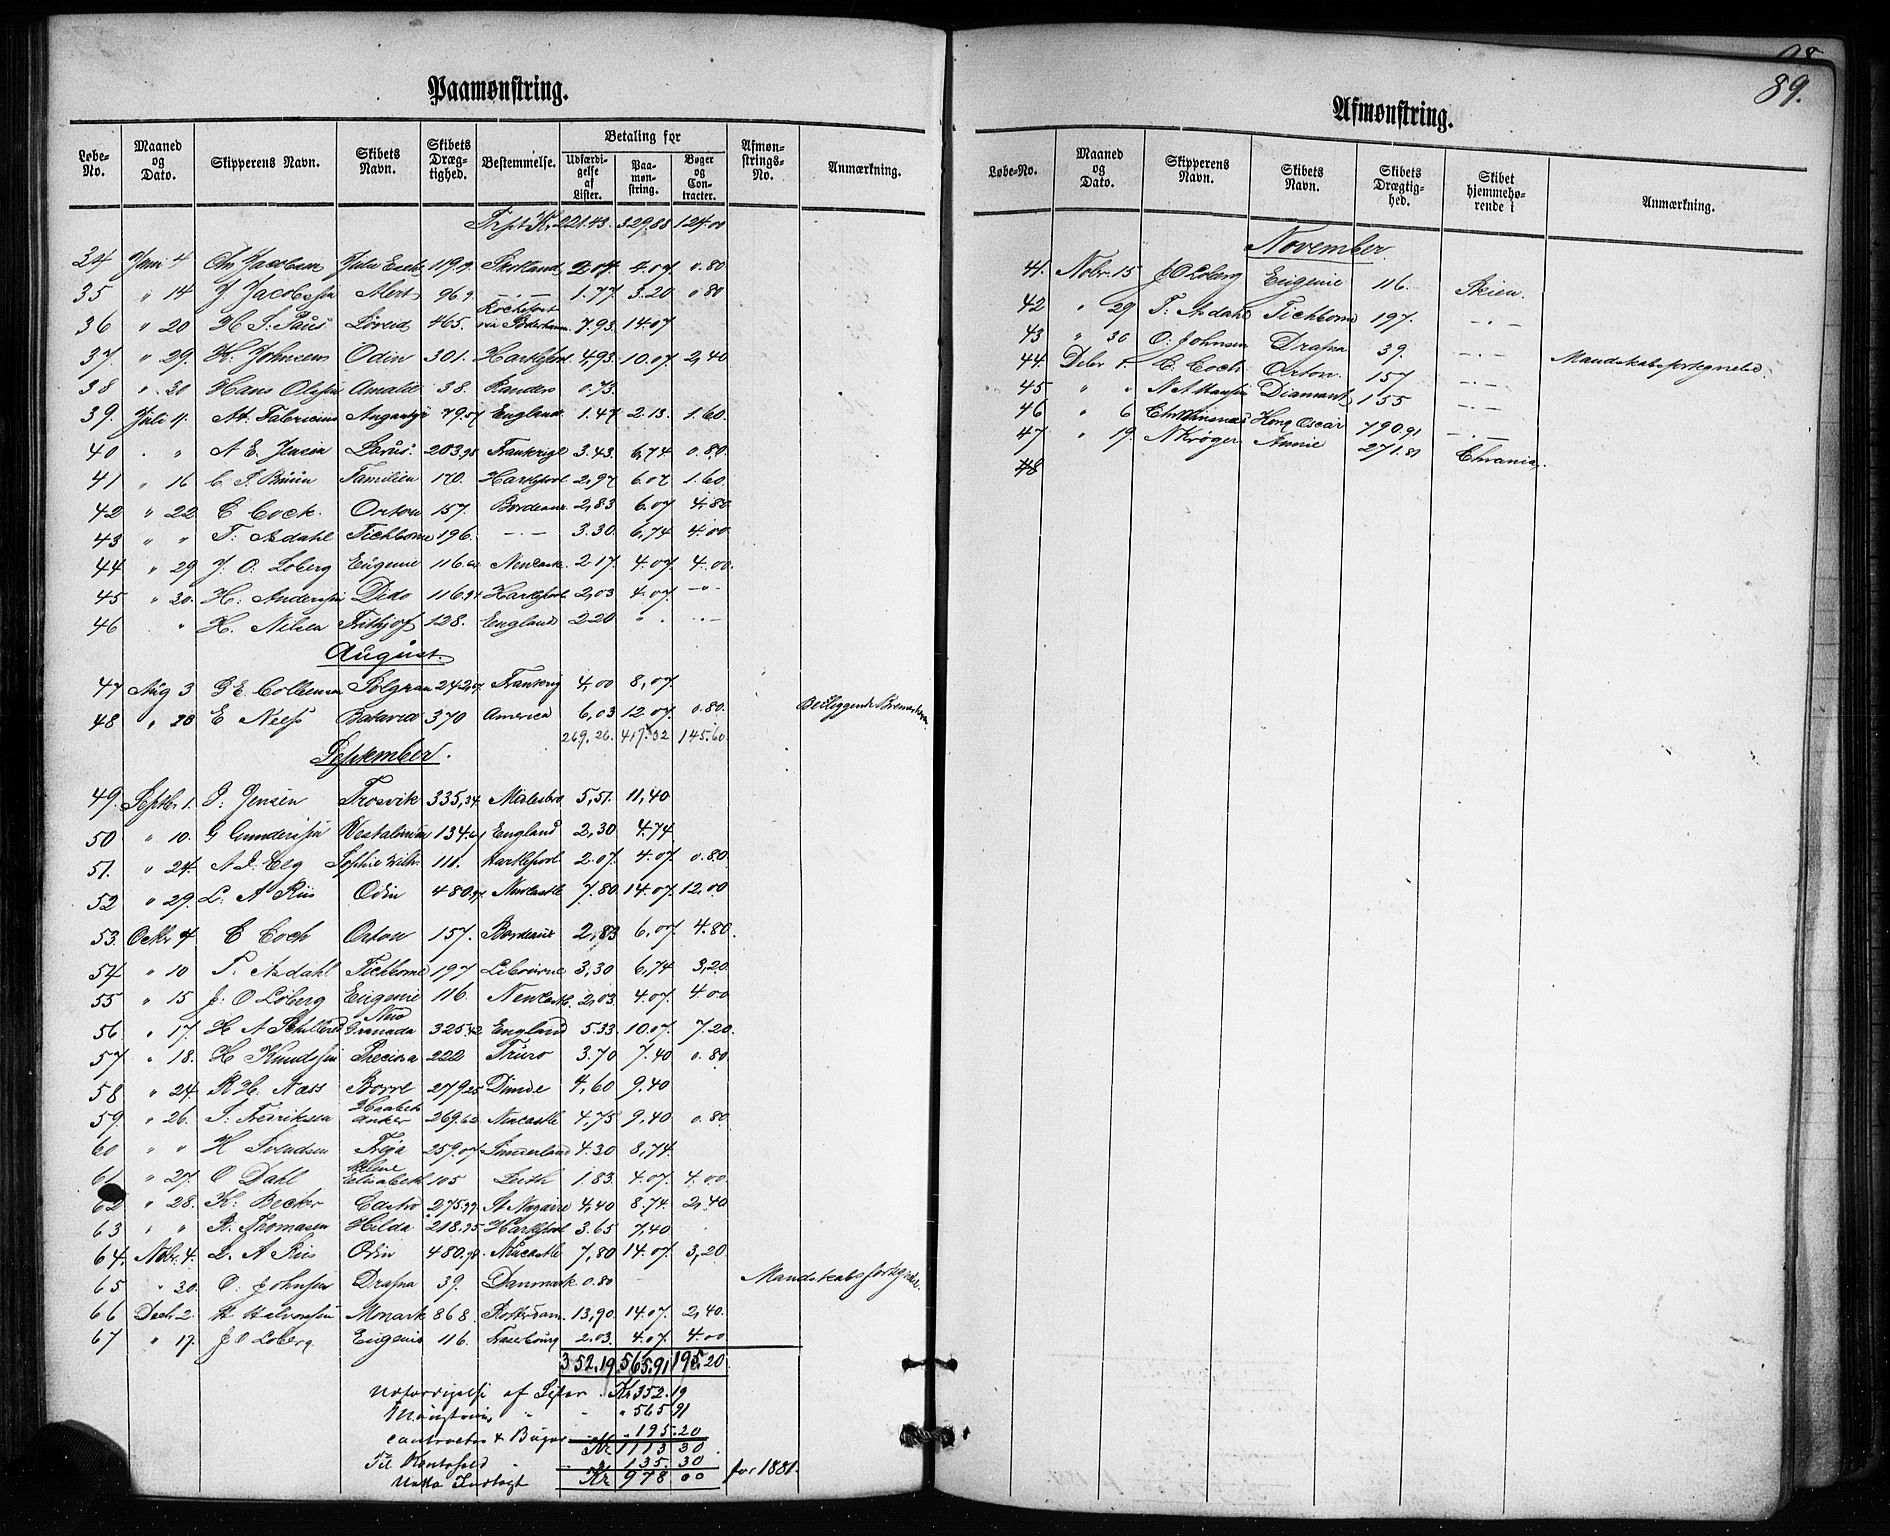 98
89.
Paamønstring.
Løbe-No. Maaned og Dato. Skipperens Navn. Skibets Navn. Skibets Dræg-tighed. Bestemmelse. Betaling for Udfærdi-gelse af Lister. Paa-møn-string. Bøger og Con-tracter. Afmøn-strings-No. Anmærkning.
221.43. 329.88 124.00
34 Juni 4 Jacobsen 119.9 Skotland 2.07 4.07 0.80
35 " 14 J Jacobsen Alert 96.9 —.— 1.77 3.20 0.80
36 " 20 H. S. Paus Løveid 465. Rochefort via 7.93. 14.07
37 " 29. K. Johnsen Odin 301. Hartlepool 4,93. 10.07 2,40
38 " 30 Hans Olssen Amalie 38. Randers 0.73.
39. Juli 11. Fabricius 79.57 England 1.47 2.13. 1.60
40 " " A E. Jensen Larus. 203.98 Frankrige 3.43. 6,74 0.80
41 " 16 C. F. Bruun Familien 170. Hartlepool 2,97 6.07 1.60
42 " 22 E Cock. Orton 157. Bordeaux 2,83 6.07 4.80
43 " " T. Asdahl Tichborne 196. —.— 3.30. 6,74 4.00
44 " 29 J. O. Løberg Eugenie 116. Newcastle. 2.17. 4.07 4.00.
45 " 30. H. Anderssen Dido 116.94 Hartlepool 2,03 4.07. —"—
46 " H. Nilsen Frithjof 128. England 2.20 " .—
August.
47 Aug 3 G E Collbensen 242.07 Frankrig 4,00 8,07.
48 " 28 E Nielss Batavia 370 America 6,03 12.07. 0.80. Beliggende
269.26. 417.32 145.60
September.
49. Septbr. 1. J. Jensen Trosvik 335,34 5,51. 11,40
50 " 10. G Gunderssen Vestalinden 134.61 England 2,30 4.74
51. " 24. A. J. Elg Sophie Wilh. 111. Hartlepool 2.07. 4.07. 0.80.
52 " 29. L. A Riis Odin 480.97 Newcastle 7.80. 14.07. 12.00
53. Octbr 4 E Coch Orton 157. Bordeaux 2,83 6,07 4.80.
54 " 10 T. Asdahl Tichborne 197 Libourne 3,30 6,74 3,20
55 " 15 J. O Løberg Eugenie 116. Newcastle. 2,03. 4.07. 4.00
56 " 17. H A New Granada 325.42 England 5.33. 10.07. 7.20.
57 " 18. H Knudssen Preciosa 222 Truro 3.70 7.40 0.80
58 " 24. R H. Næss Borre 279.25 Dunde 4,60 9.40
59 " 26. S. Fredriksen Anker 269.62 Newcastle 4.75 9,40 0.80
60 " " H Svendsen Freja 259.07 Sunderland 4.30 8,74
61 " 27. O Dahl Helene Elisabeth 105 Leith 1.83. 4.07. 4.00.
62 " 28. K. Becker Castro 275.99 St Nazaire 4,40 8.74. 2.40
63 " " R. Thomasen Hilda 218.95 Hartlepool 3.65 7,40
64. Nobr. 4. L. A Riis Odin 480.98. Newcastle 7,80 14.07. 3,20.
65 " 30. O. Johnsen Drafna 39. Danmark. 0.80 Mandskabsfortegnelse.
66 Decb 2. H Halvorssen Monark 868 Rotterdam. 13,90 14.07. 2,40.
67 " 17. J O Løberg Eugenie 116. 2.03. 4.07. 4.00
352.19 565.91 195.20
Udfærdigelse af Lister Kr 352.19
Mønstring " " 565 91
Contracter & Bøger " 195.20
Kr 1113 30
Til " 135. 30
Netto Indtægt Kr 978 00 for 1881.
Afmønstring.
Løbe-No. Maaned og Dato. Skipperens Navn. Skibets Navn. Skibets Drægtig-hed. Skibet hjemmehø-rende i Anmærkning.
November.
41. Nobr. 15 J O Løberg Eugenie 116. Skien.
42 " 29 T. Asdahl Tichborne 197. —.—
43 " 30 O. Johnsen Drafna 39. —.— Mandskabsfortegnelse.
44. Debr 1. E. Coch Orton. 157 —.—
45 " " N A Hansen Diamant 155 —.—
46 " 6 Kong Oscar 790.91 —.—
47 " 19. N Krøger Annie 271.81 Chrania.
48